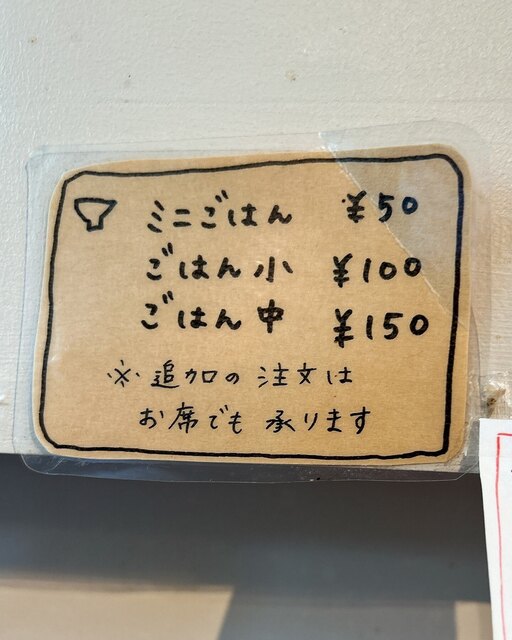 ミニごはん ¥50
ごはん小 ¥100
ごはん中 ¥150
※追加の注文は
お席でも承ります